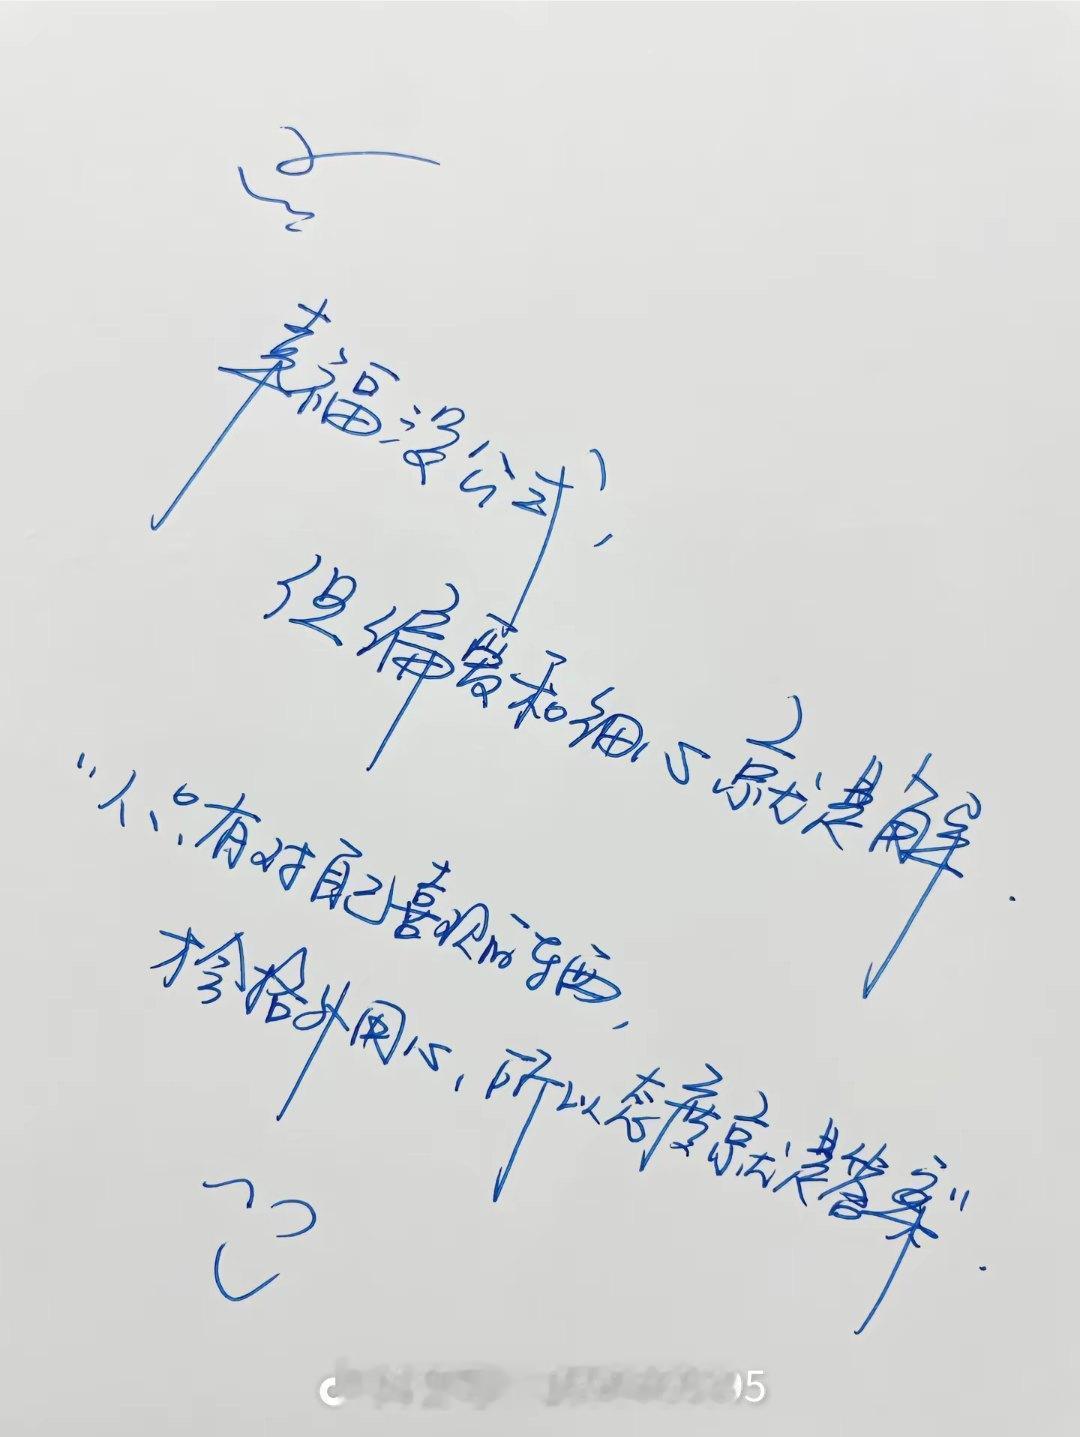 幸福没公式，
但偏爱和细心就是解.
“人只有对自己喜欢的东西，
才会格外用心，所以态度就是答案”.